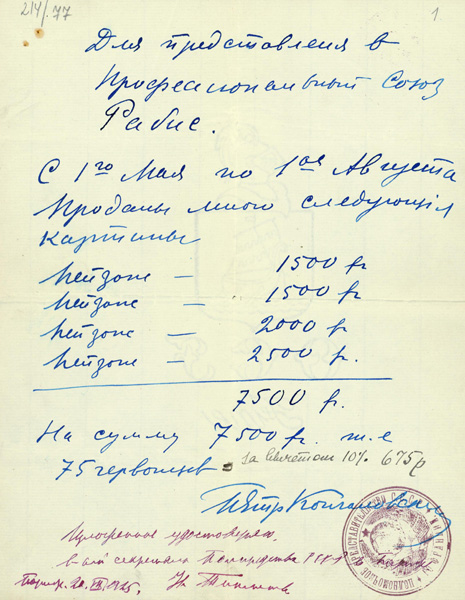 214/.77
1
Для представленя в
Профессиональный Союз
Рабис.
С 1го Мая по 1ое Августа
Проданы мною следующія
картины
пейзаже — 1500 fr
пейзаже — 1500 fr
пейзаже — 2000 fr
пейзаже — 2500 fr.
7500 fr.
На сумму 7500 fr. т.е
75 червонцев. за вычетом 10% 675р
Пётр Кончаловский
Изложенное удостоверяю
секретаря Полпредства СССР
Париж. 20.